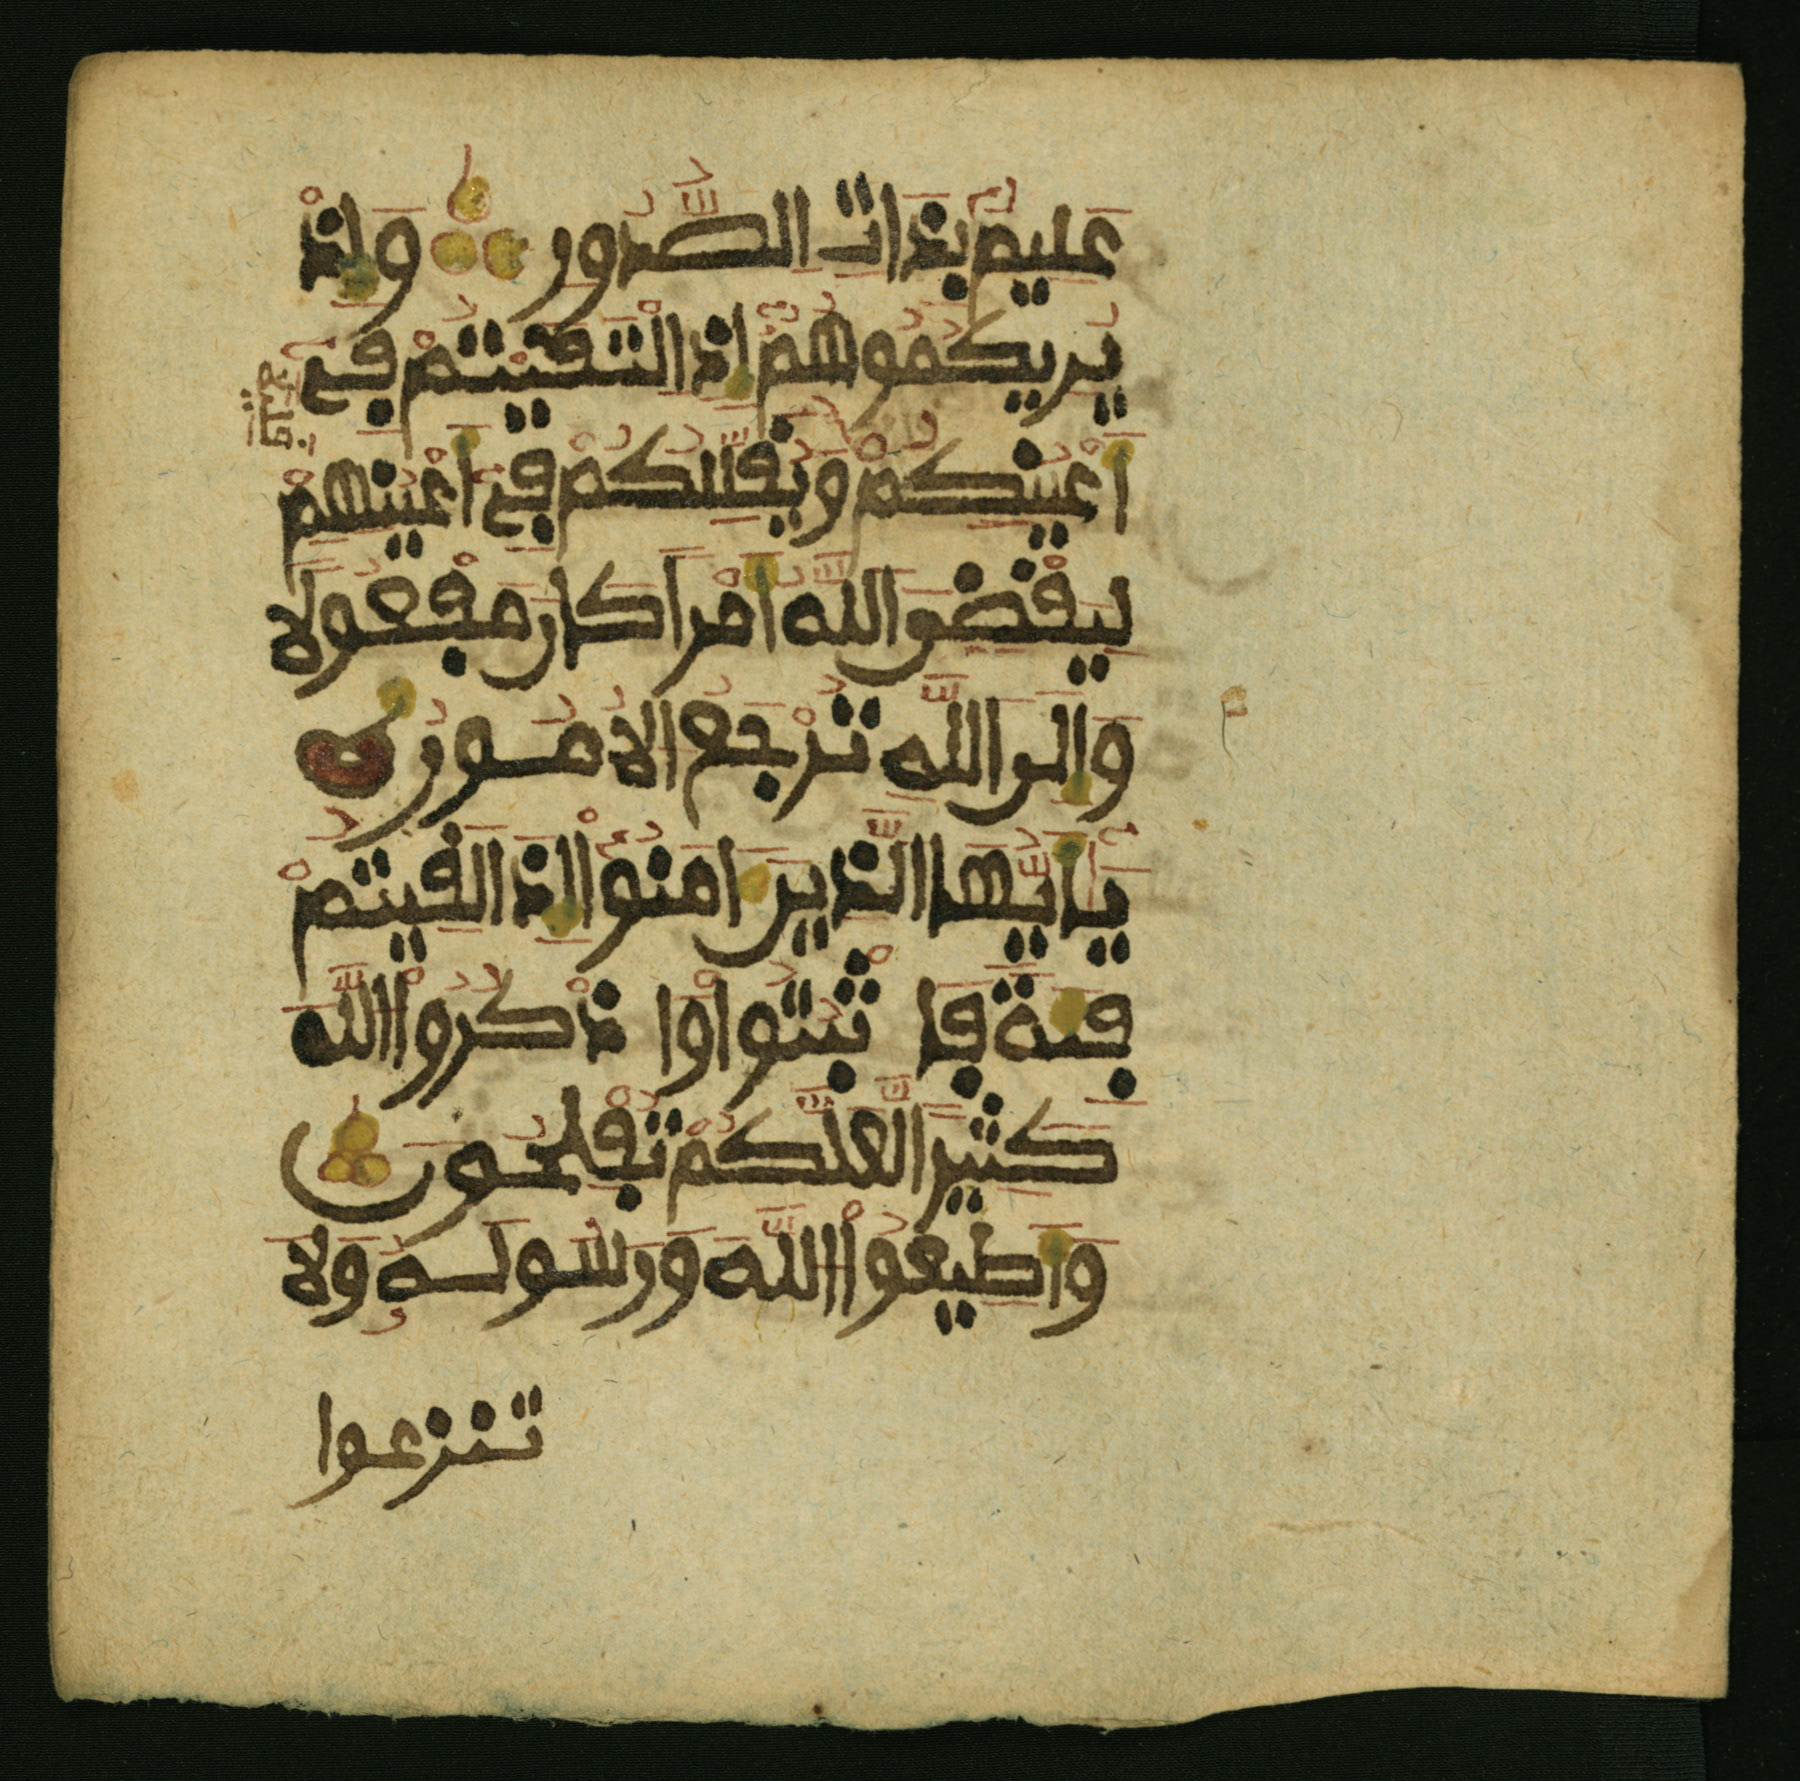 عليم بذات الصدور وإذ
يريكموهم إذ التقيتم في
أعينكم قليلا ويقللكم في أعينهم
ليقضي الله أمرا كان مفعولا
وإلى الله ترجع الأمور
يأيها الذين ءامنوا إذا لقيتم
فئة فاثبتوا واذكروا الله
كثيرا لعلكم تفلحون
وأطيعوا الله ورسوله ولا
تنزعوا